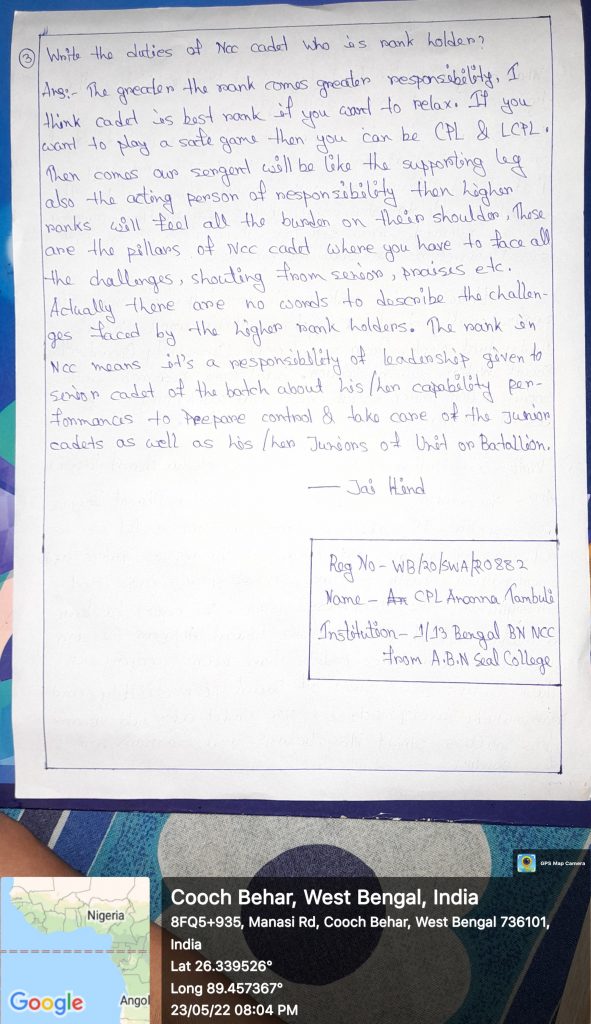 ③ Write the duties of Ncc cadet who is rank holder?
Ans:- The greater the rank comes greater responsibility. I
think cadet is best rank if you want to relax. If you
want to play a safe game then you can be CPL & LCPL.
Then comes our sergent will be like the supporting leg
also the acting person of responsibility then higher
ranks will feel all the burden on their shoulder. These
are the pillars of Ncc cadet where you have to face all
the challenges, shouting from senior, praises etc.
Actually there are no words to describe the challen-
ges faced by the higher rank holders. The rank in
Ncc means it's a responsibility of leadership given to
senior cadet of the batch about his/her capability per-
formances to Prepare control & take care of the Junior
cadets as well as his/her Juniors of Unit or Batallion.
— Jai Hind
Reg No - WB/20/SWA/20882
Name - CPL Ananna Tambuli
Institution - 1/13 Bengal BN NCC
from A.B.N Seal College
GPS Map Camera
Nigeria
Angol
Google
Cooch Behar, West Bengal, India
8FQ5+935, Manasi Rd, Cooch Behar, West Bengal 736101,
India
Lat 26.339526°
Long 89.457367°
23/05/22 08:04 PM